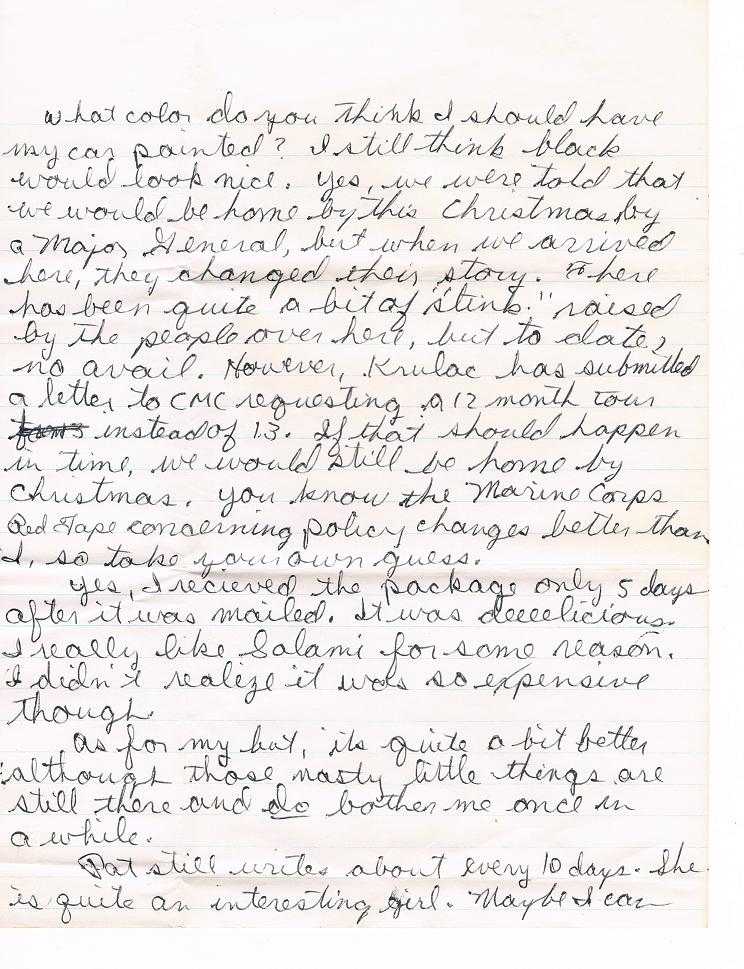 what color do you think I should have
my car painted? I still think black
would look nice. Yes, we were told that
we would be home by this Christmas, by
a Major General, but when we arrived
here, they changed their story. There
has been quite a bit of "stink" raised
by the people over here, but to date,
no avail. However, Krulac has submitted
a letter to CMC requesting a 12 month tour
instead of 13. If that should happen
in time, we would still be home by
Christmas. You know the Marine Corps
Red Tape concerning policy changes better than
I, so take your own guess.
Yes, I recieved the package only 5 days
after it was mailed. It was deeeelicious.
I really like Salami for some reason.
I didn't realize it was so expensive
though.
As for my but, its quite a bit better
although those nasty little things are
still there and do bother me once in
a while.
Pat still writes about every 10 days. She
is quite an interesting girl. Maybe I can